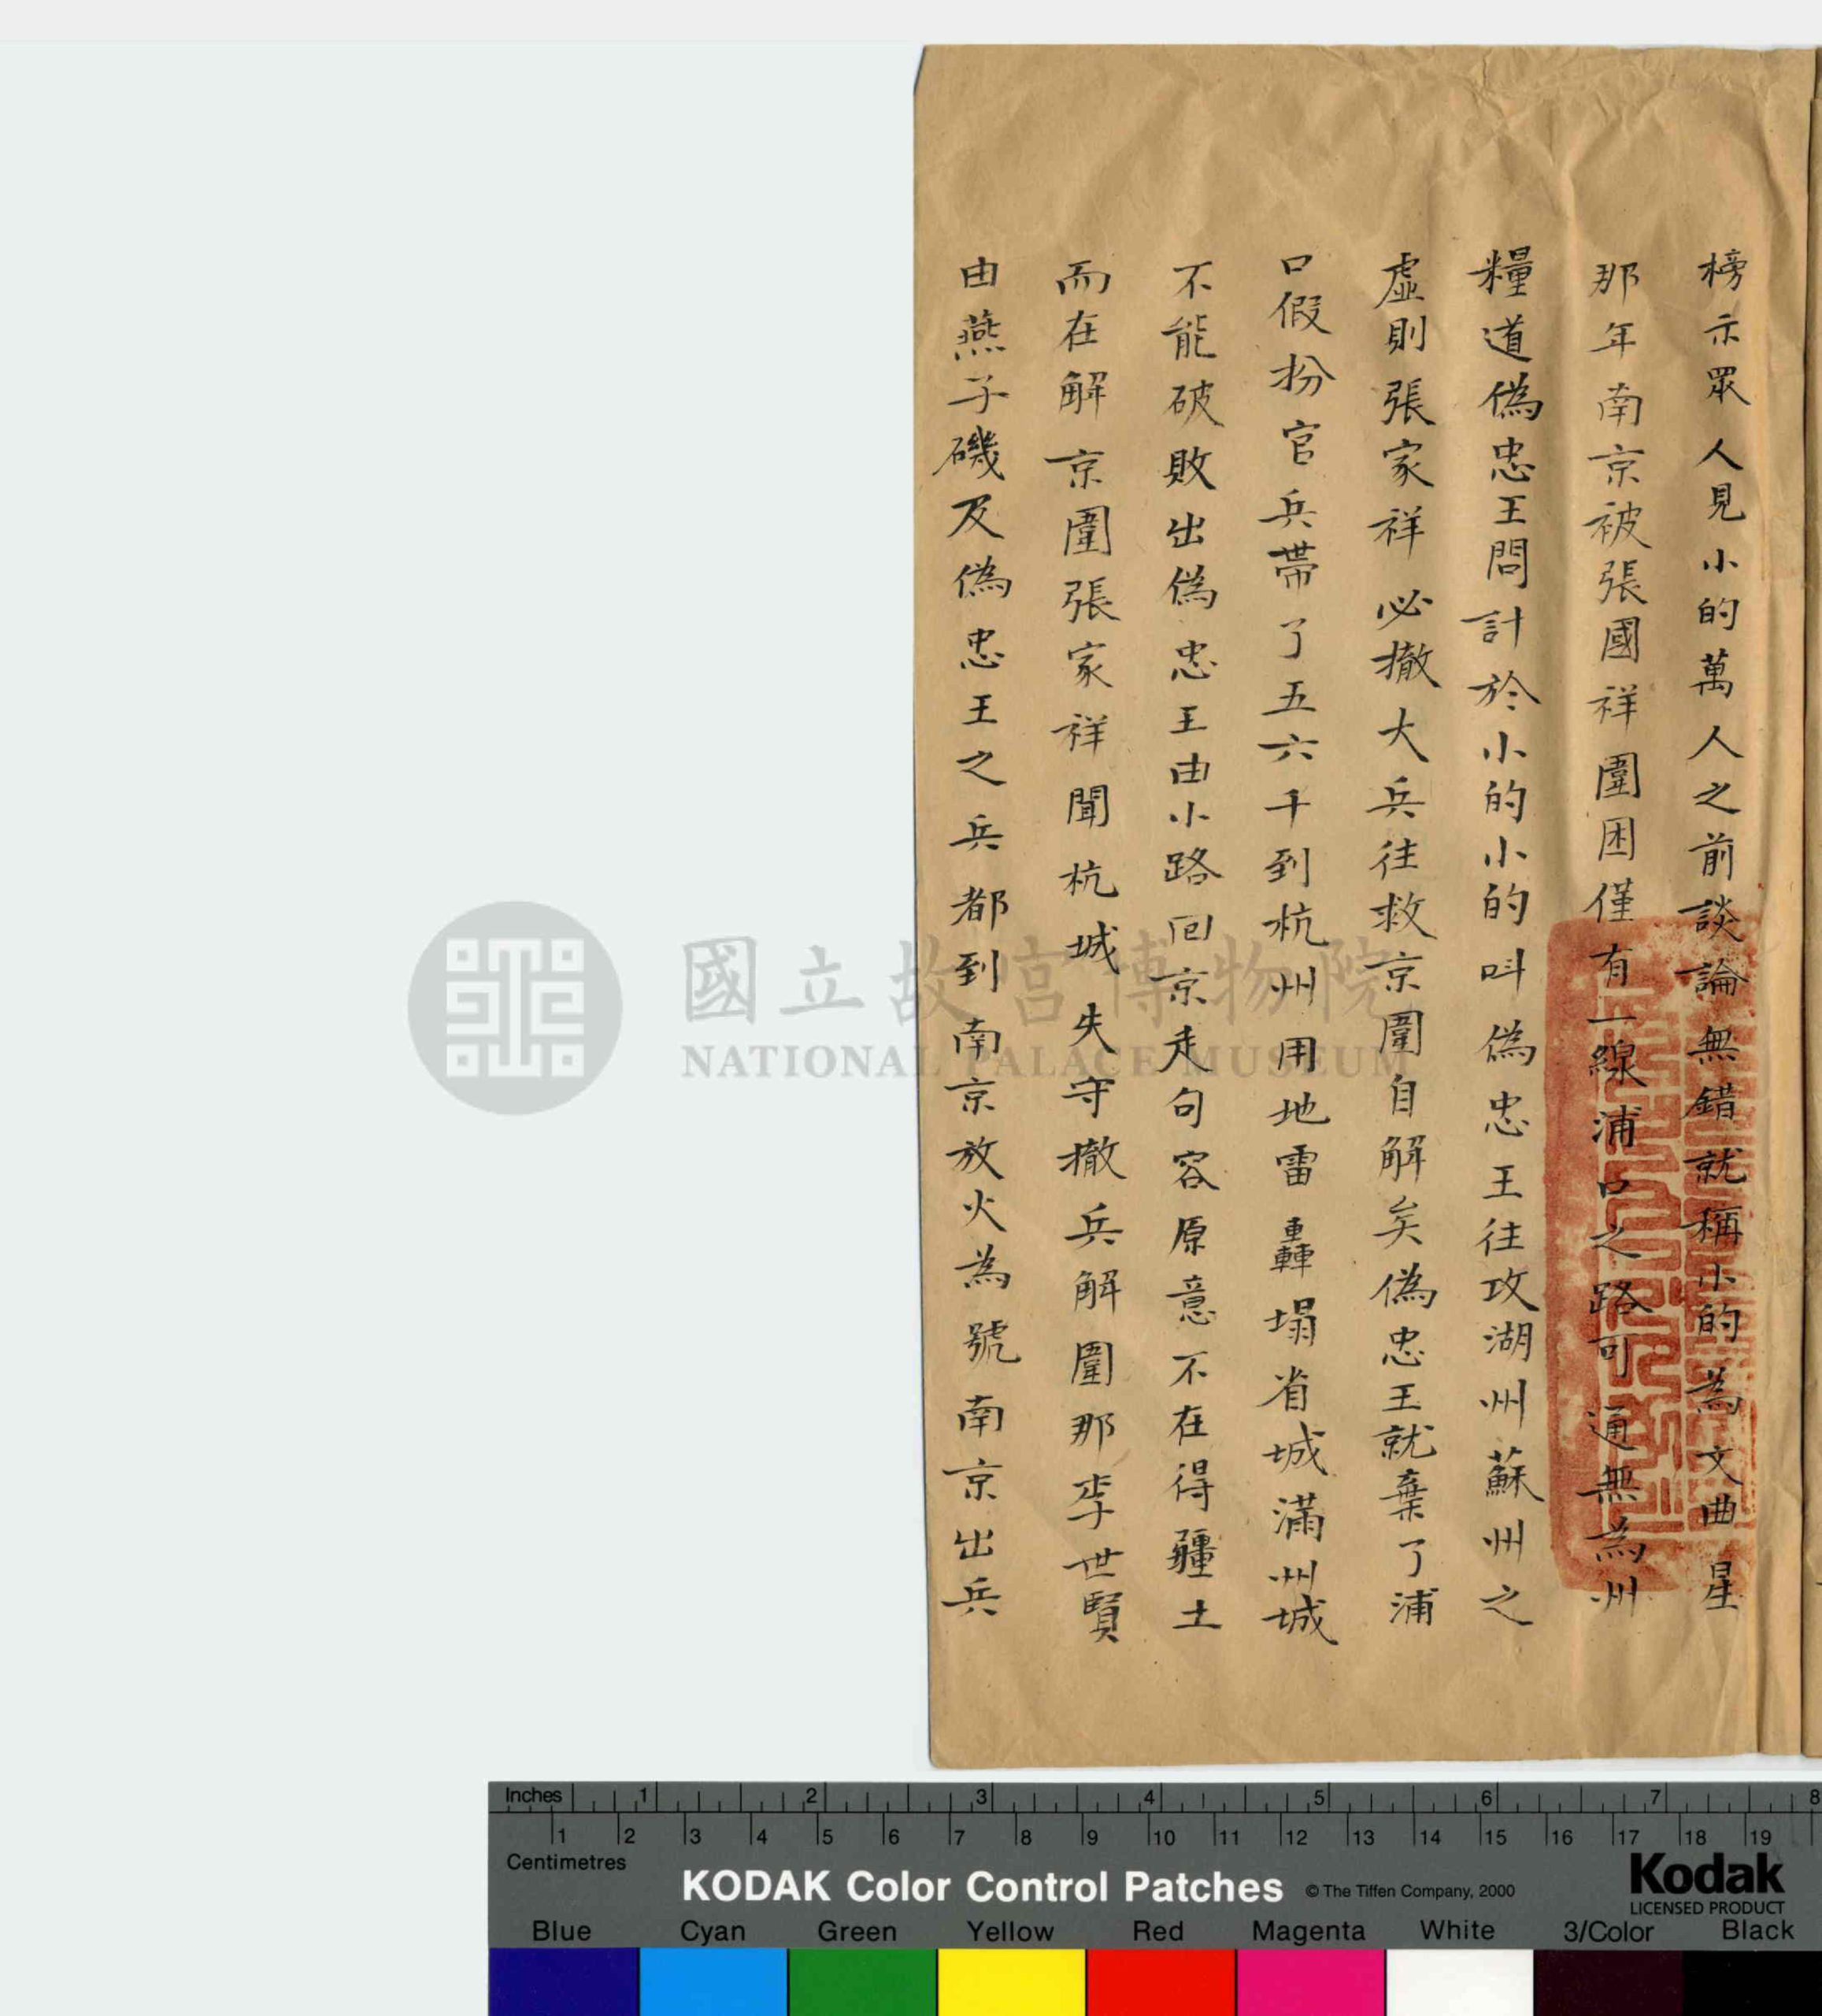 榜示眾人見小的萬人之前談論無錯就稱小的為文曲星
那年南京被張國祥圍困僅有一線浦口之路可通無為州
糧道偽忠王問計於小的小的叫偽忠王往攻湖州蘇州之
虛則張家祥必撤大兵往救京圍自解矣偽忠王就棄了浦
口假扮官兵帶了五六千到杭州用地雷轟塌省城滿州城
不能破敗出偽忠王由小路囘京走句容原意不在得疆土
而在解京圍張家祥聞杭城失守撤兵解圍那李世賢
由燕子磯及偽忠王之兵都到南京放火為號南京出兵
國立故宮博物院
NATIONAL PALACE MUSEUM
Inches 1 2 3 4 5 6 7 8
1 2 3 4 5 6 7 8 9 10 11 12 13 14 15 16 17 18 19
Centimetres
KODAK Color Control Patches © The Tiffen Company, 2000
Kodak
LICENSED PRODUCT
Blue Cyan Green Yellow Red Magenta White 3/Color Black